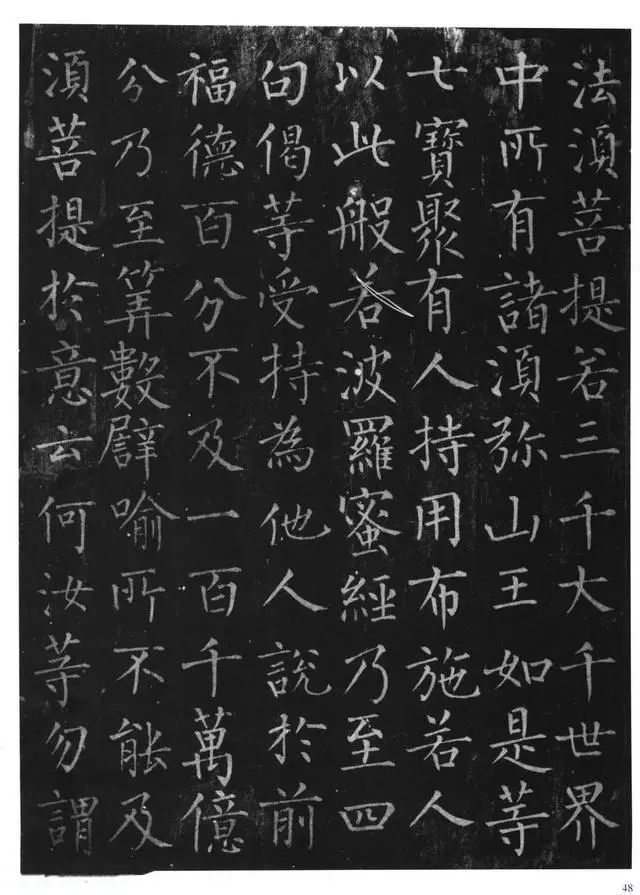 法湏菩提若三千大千世界
中所有諸湏弥山王如是等
七寶聚有人持用布施若人
以此般若波羅蜜經乃至四
句偈等受持為他人說於前
福德百分不及一百千萬億
分乃至筭數譬喻所不能及
湏菩提於意云何汝等勿謂
48